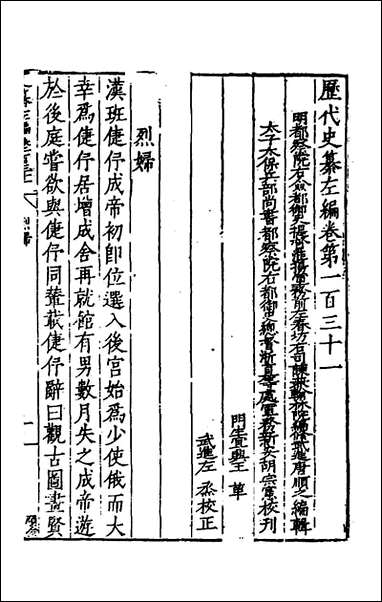 歷代史纂左編卷第一百三十一
明都察院右僉都御史提督淮揚軍務前左春坊右司諫兼翰林院編修武進唐順之編輯
太子太保兵部尚書都察院右都御史總督浙直等處軍務新安胡宗憲校刊
門生
武進左烝校正
烈婦
漢班倢伃成帝初卽位選入後宮始爲少使俄而大
幸爲倢伃居增成舍再就館有男數月失之成帝遊
於後庭嘗欲與倢伃同輦載倢伃辭曰觀古圖畫賢